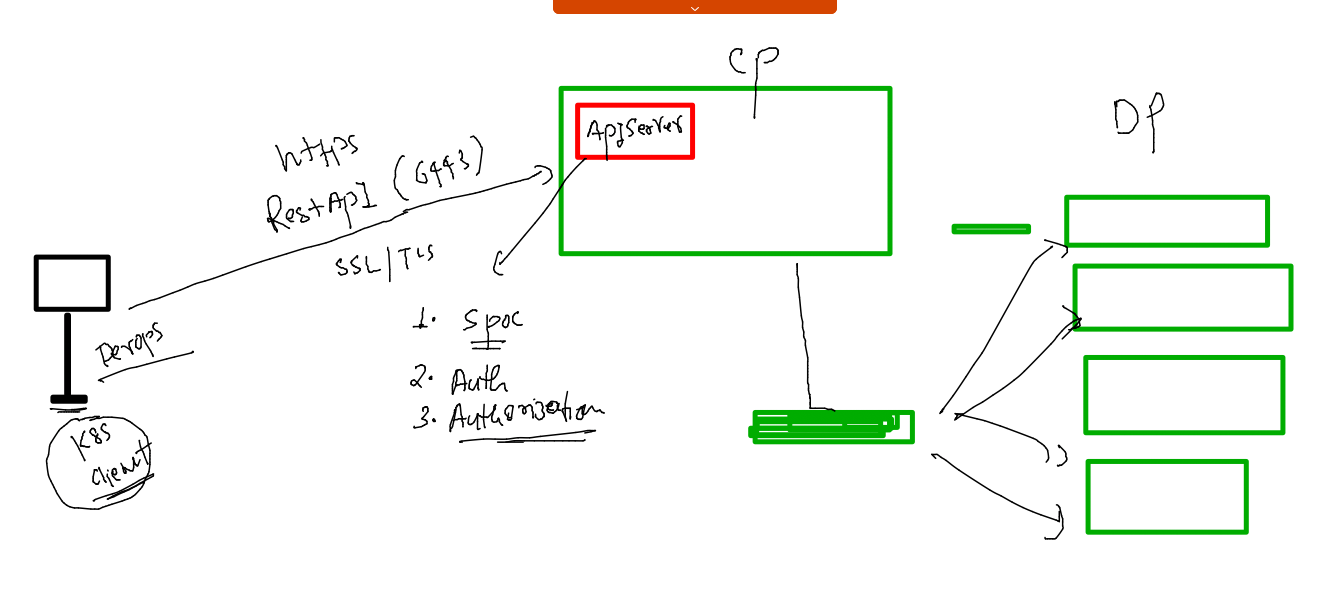 CP
ApIServer
DP
https
RestApI (6443)
SSL/TLS
Devops
K8s
Client
1. Spoc
2. Auth
3. Authorization